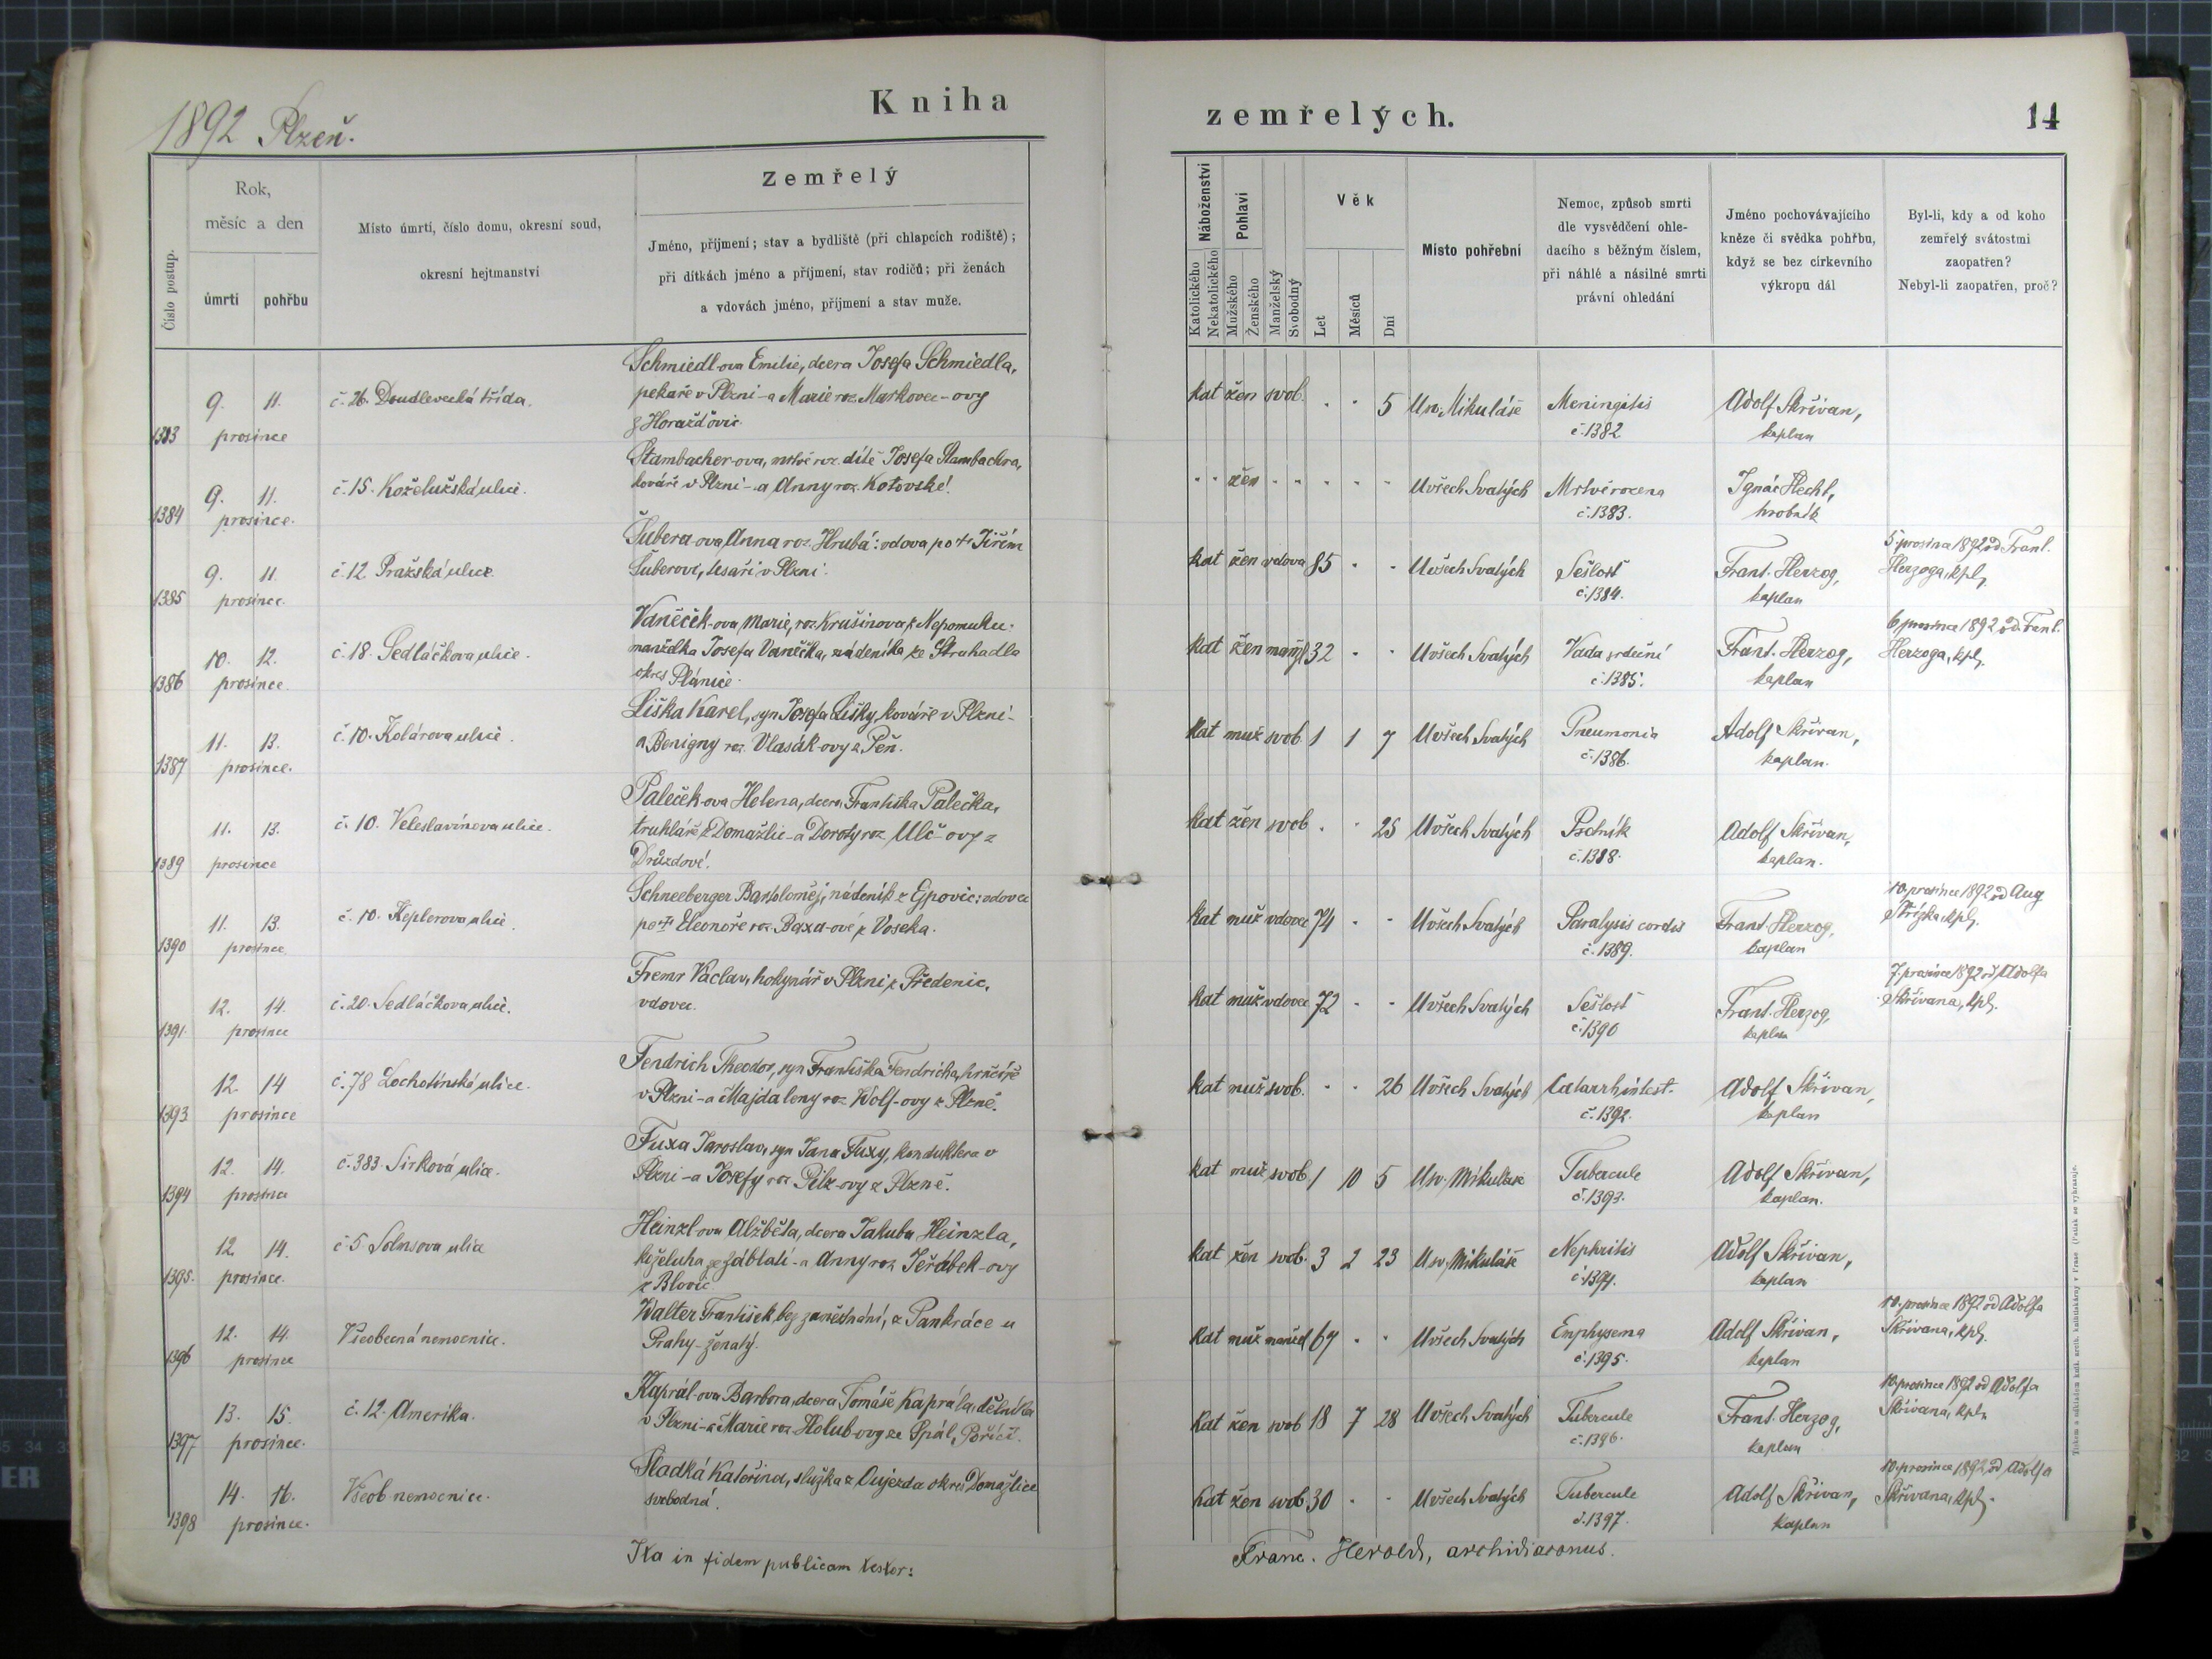 1892 Plzeň.
Kniha
zemřelých.
14
Číslo postup.
Rok,
měsíc a den
úmrtí
pohřbu
Místo úmrtí, číslo domu, okresní soud,
okresní hejtmanství
Zemřelý
Jméno, příjmení; stav a bydliště (při chlapcích rodiště);
při dítkách jméno a příjmení, stav rodičů; při ženách
a vdovách jméno, příjmení a stav muže.
Náboženství
Katolického
Nekatolického
Pohlaví
Mužského
Ženského
Manželský
Svobodný
Věk
Let
Měsíců
Dní
Místo pohřební
Nemoc, způsob smrti
dle vysvědčení ohle-
dacího s běžným číslem,
při náhlé a násilné smrti
právní ohledání
Jméno pochovávajícího
kněze či svědka pohřbu,
když se bez církevního
výkropu dál
Byl-li, kdy a od koho
zemřelý svátostmi
zaopatřen?
Nebyl-li zaopatřen, proč?
1383 9. 11. prosince
č. 26. Doudlevecká třída.
Schmiedl-ova Emilie, dcera Josefa Schmiedla,
pekaře v Plzni - a Marie roz. Markovec-ovy
z Horažďovic.
kat žen svob. . . 5 U sv. Mikuláše
Meningitis
č. 1382
Adolf Skřivan,
kaplan
1384 9. 11. prosince.
č. 15. Koželužská ulice.
Stambacher-ova, mrtvě roz. dítě Josefa Stambachra,
kováře v Plzni - a Anny roz. Kotovské.
. . žen . . . . . U všech Svatých
Mrtvě rozena
č. 1383.
Ignác Hecht,
hrobník
1385 9. 11. prosince.
č. 12. Pražská ulice.
Šubera-ova Anna roz. Hrubá: vdova po † Jiřím
Šuberovi, tesaři v Plzni.
kat žen vdova 85 . . U všech Svatých
Sešlost
č. 1384.
Frant. Herzog,
kaplan
5. prosince 1892 od Frant.
Herzoga, kpl.
1386 10. 12. prosince.
č. 18. Sedláčkova ulice.
Vaněček-ova Marie, roz. Krušinova z Nepomuku:
manželka Josefa Vaněčka, nádeníka ze Struhadla
okres Plánice.
kat žen manž 32 . . U všech Svatých
Vada srdeční
č. 1385.
Frant. Herzog,
kaplan
6. prosince 1892 od Frant.
Herzoga, kpl.
1387 11. 13. prosince.
č. 10. Kolárova ulice.
Liška Karel, syn Josefa Lišky, kováře v Plzni -
a Benigny roz. Vlasák-ovy z Peň.
kat muž svob 1 1 7 U všech Svatých
Pneumonia
č. 1386.
Adolf Skřivan,
kaplan.
1389 11. 13. prosince
č. 10. Veleslavínova ulice.
Paleček-ova Helena, dcera Františka Palečka,
truhláře z Domažlic - a Doroty roz. Ulč-ovy z
Drůzdové.
kat žen svob . . 25 U všech Svatých
Psotník
č. 1388.
Adolf Skřivan,
kaplan.
1390 11. 13. prosince
č. 10. Keplerova ulice.
Schneeberger Bartoloměj, nádeník z Ejpovic: vdovec
po † Eleonoře roz. Baxa-ové z Voseka.
kat muž vdovec 74 . . U všech Svatých
Paralysis cordis
č. 1389.
Frant. Herzog,
kaplan
10. prosince 1892 od Aug
Střízka, kpl.
1391. 12. 14. prosince
č. 20. Sedláčkova ulice.
Fremr Václav, hokynář v Plzni, z Předenic,
vdovec.
kat muž vdovec 72 . . U všech Svatých
Sešlost
č. 1390
Frant. Herzog,
kaplan
7. prosince 1892 od Adolfa
Skřivana, kpl.
1393 12. 14 prosince
č. 78 Lochotínská ulice.
Fendrich Theodor, syn Františka Fendricha, hrnčíře
v Plzni - a Majdaleny roz. Wolf-ovy z Plzně.
kat muž svob. . . 26 U všech Svatých
Catarrh intest.
č. 1392.
Adolf Skřivan,
kaplan
1394 12. 14. prosince
č. 383. Sirková ulice.
Fuxa Jaroslav, syn Jana Fuxy, konduktera v
Plzni - a Josefy roz Pilz-ovy z Plzně.
kat muž svob. 1 10 5 U sv. Mikuláše
Tubercule
č. 1393.
Adolf Skřivan,
kaplan.
1395. 12 14. prosince.
č. 5 Solnsova ulice
Heinzl-ova Alžběta, dcera Jakuba Heinzla,
koželuha ze Záblatí - a Anny roz. Jeřábek-ovy
z Blovic.
kat žen svob. 3 2 23 U sv. Mikuláše
Nephritis
č. 1394.
Adolf Skřivan,
kaplan
1396 12. 14. prosince
Všeobecná nemocnice.
Walter František, bez zaměstnání, z Pankráce u
Prahy - ženatý.
kat muž manžel 67 . . U všech Svatých
Emphysema
č. 1395.
Adolf Skřivan,
kaplan
10. prosince 1892 od Adolfa
Skřivana, kpl.
1397 13. 15. prosince.
č. 12. Amerika.
Kaprál-ova Barbora, dcera Tomáše Kaprála, dělníka
v Plzni - a Marie roz. Holub-ovy ze Spál. Poříčí.
Kat žen svob 18 7 28 U všech Svatých
Tubercule
č. 1396.
Frant. Herzog,
kaplan
10. prosince 1892 od Adolfa
Skřivana, kpl.
1398 14. 16. prosince.
Všeob nemocnice.
Sladká Kateřina, služka z Oujezda okres Domažlice
svobodná.
Kat žen svob. 30 . . U všech Svatých
Tubercule
č. 1397.
Adolf Skřivan,
Kaplan
10. prosince 1892 od Adolfa
Skřivana, kpl.
Ita in fidem publicam testor:
Franc. Herold, archidiaconus.